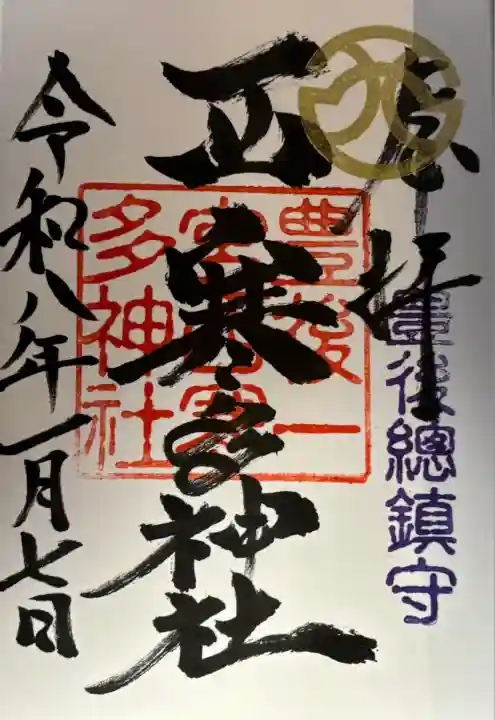 奉拝
豊後總鎮守
西寒多神社
豊後一宮西寒多神社
令和八年一月七日